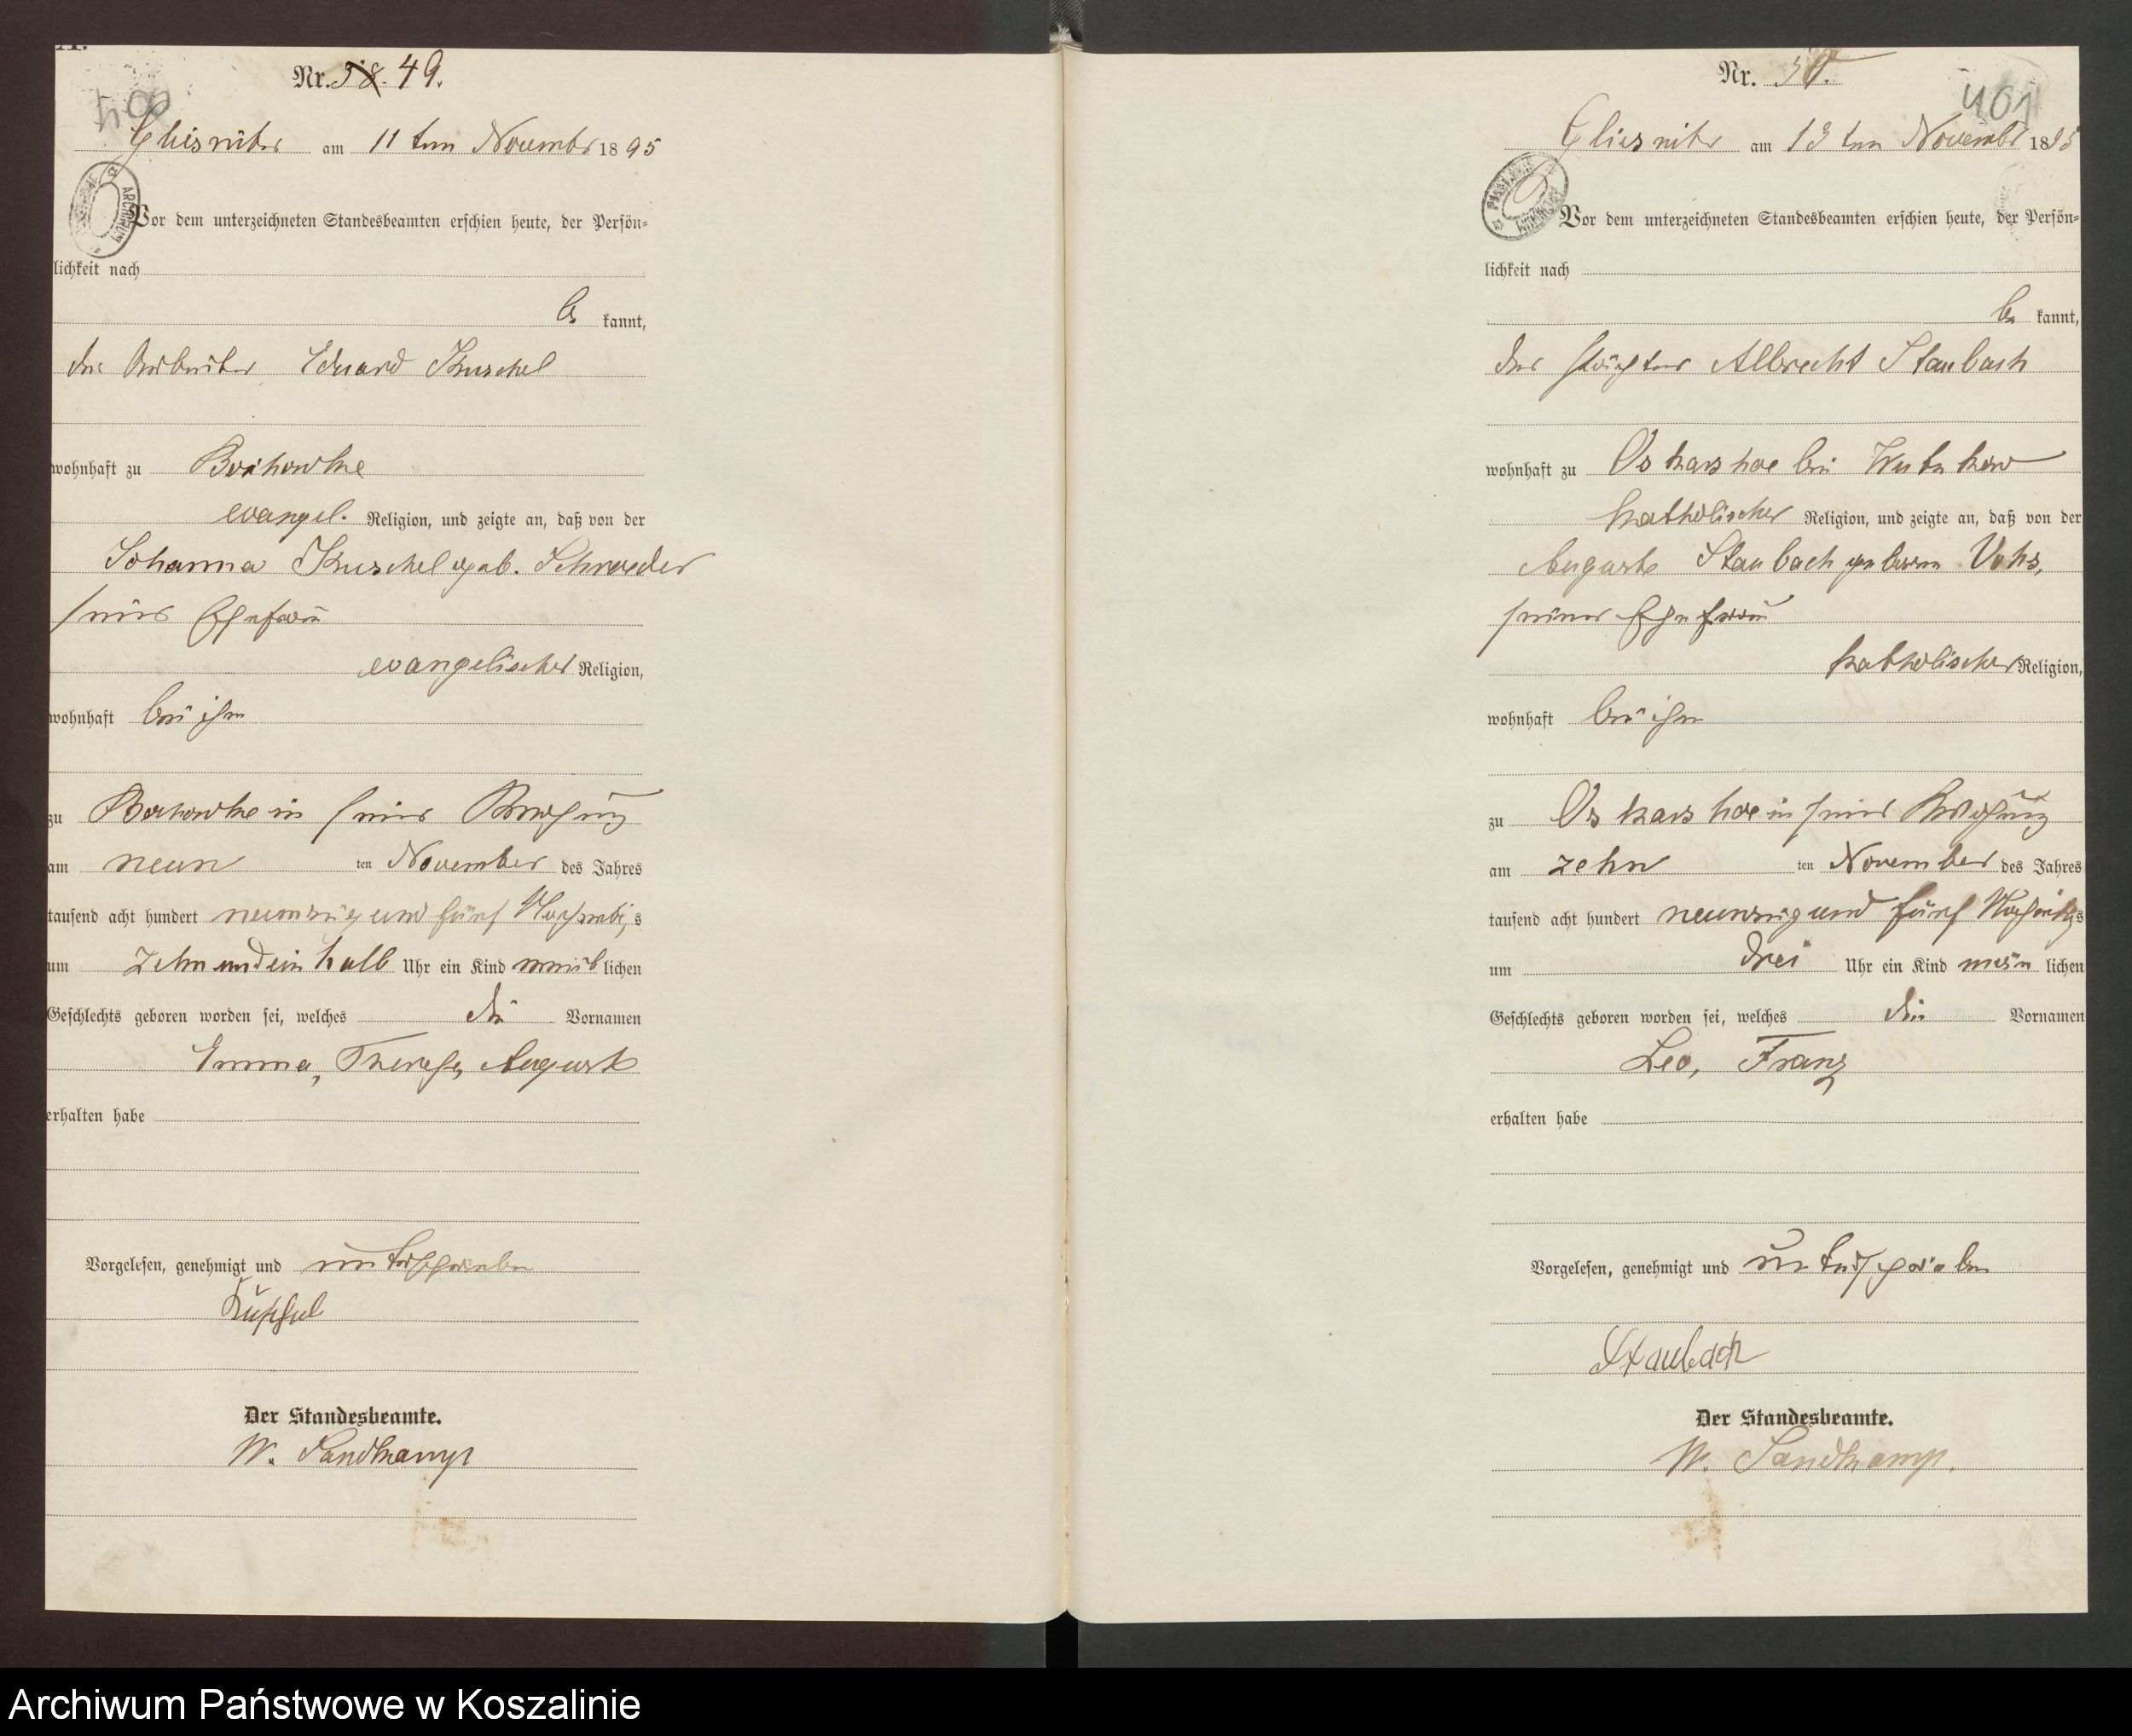 Nr. 58. 49.
408
Gliesnitz am 11 ten November 1895
Vor dem unterzeichneten Standesbeamten erschien heute, der Persön=
lichkeit nach
be kannt,
der Arbeiter Eduard Kuschel
wohnhaft zu Bochowke
evangel. Religion, und zeigte an, daß von der
Johanna Kuschel geb. Schroeder
seiner Ehefrau
evangelischer Religion,
wohnhaft bei ihm
zu Bochowke in seiner Wohnung
am neun ten November des Jahres
tausend acht hundert neunzig und fünf Nachmittags
um zehn und ein halb Uhr ein Kind weiblichen
Geschlechts geboren worden sei, welches die Vornamen
Emma, Therese, Auguste
erhalten habe
Vorgelesen, genehmigt und unterschrieben
Kuschel
Der Standesbeamte.
W. Sandkamp
Nr. 50.
401
Gliesnitz am 13 ten November 1895
Vor dem unterzeichneten Standesbeamten erschien heute, der Persön=
lichkeit nach
be kannt,
der Albrecht Staubach
wohnhaft zu Oskarshoe bei Wutzkow
katholischer Religion, und zeigte an, daß von der
Auguste Staubach geboren Vohs,
seiner Ehefrau
katholischer Religion,
wohnhaft bei ihm
zu Oskarshoe in seiner Wohnung
am zehn ten November des Jahres
tausend acht hundert neunzig und fünf Nachmittags
um drei Uhr ein Kind männ lichen
Geschlechts geboren worden sei, welches die Vornamen
Leo, Franz
erhalten habe
Vorgelesen, genehmigt und unterschrieben
Staubach
Der Standesbeamte.
W. Sandkamp.
Archiwum Państwowe w Koszalinie